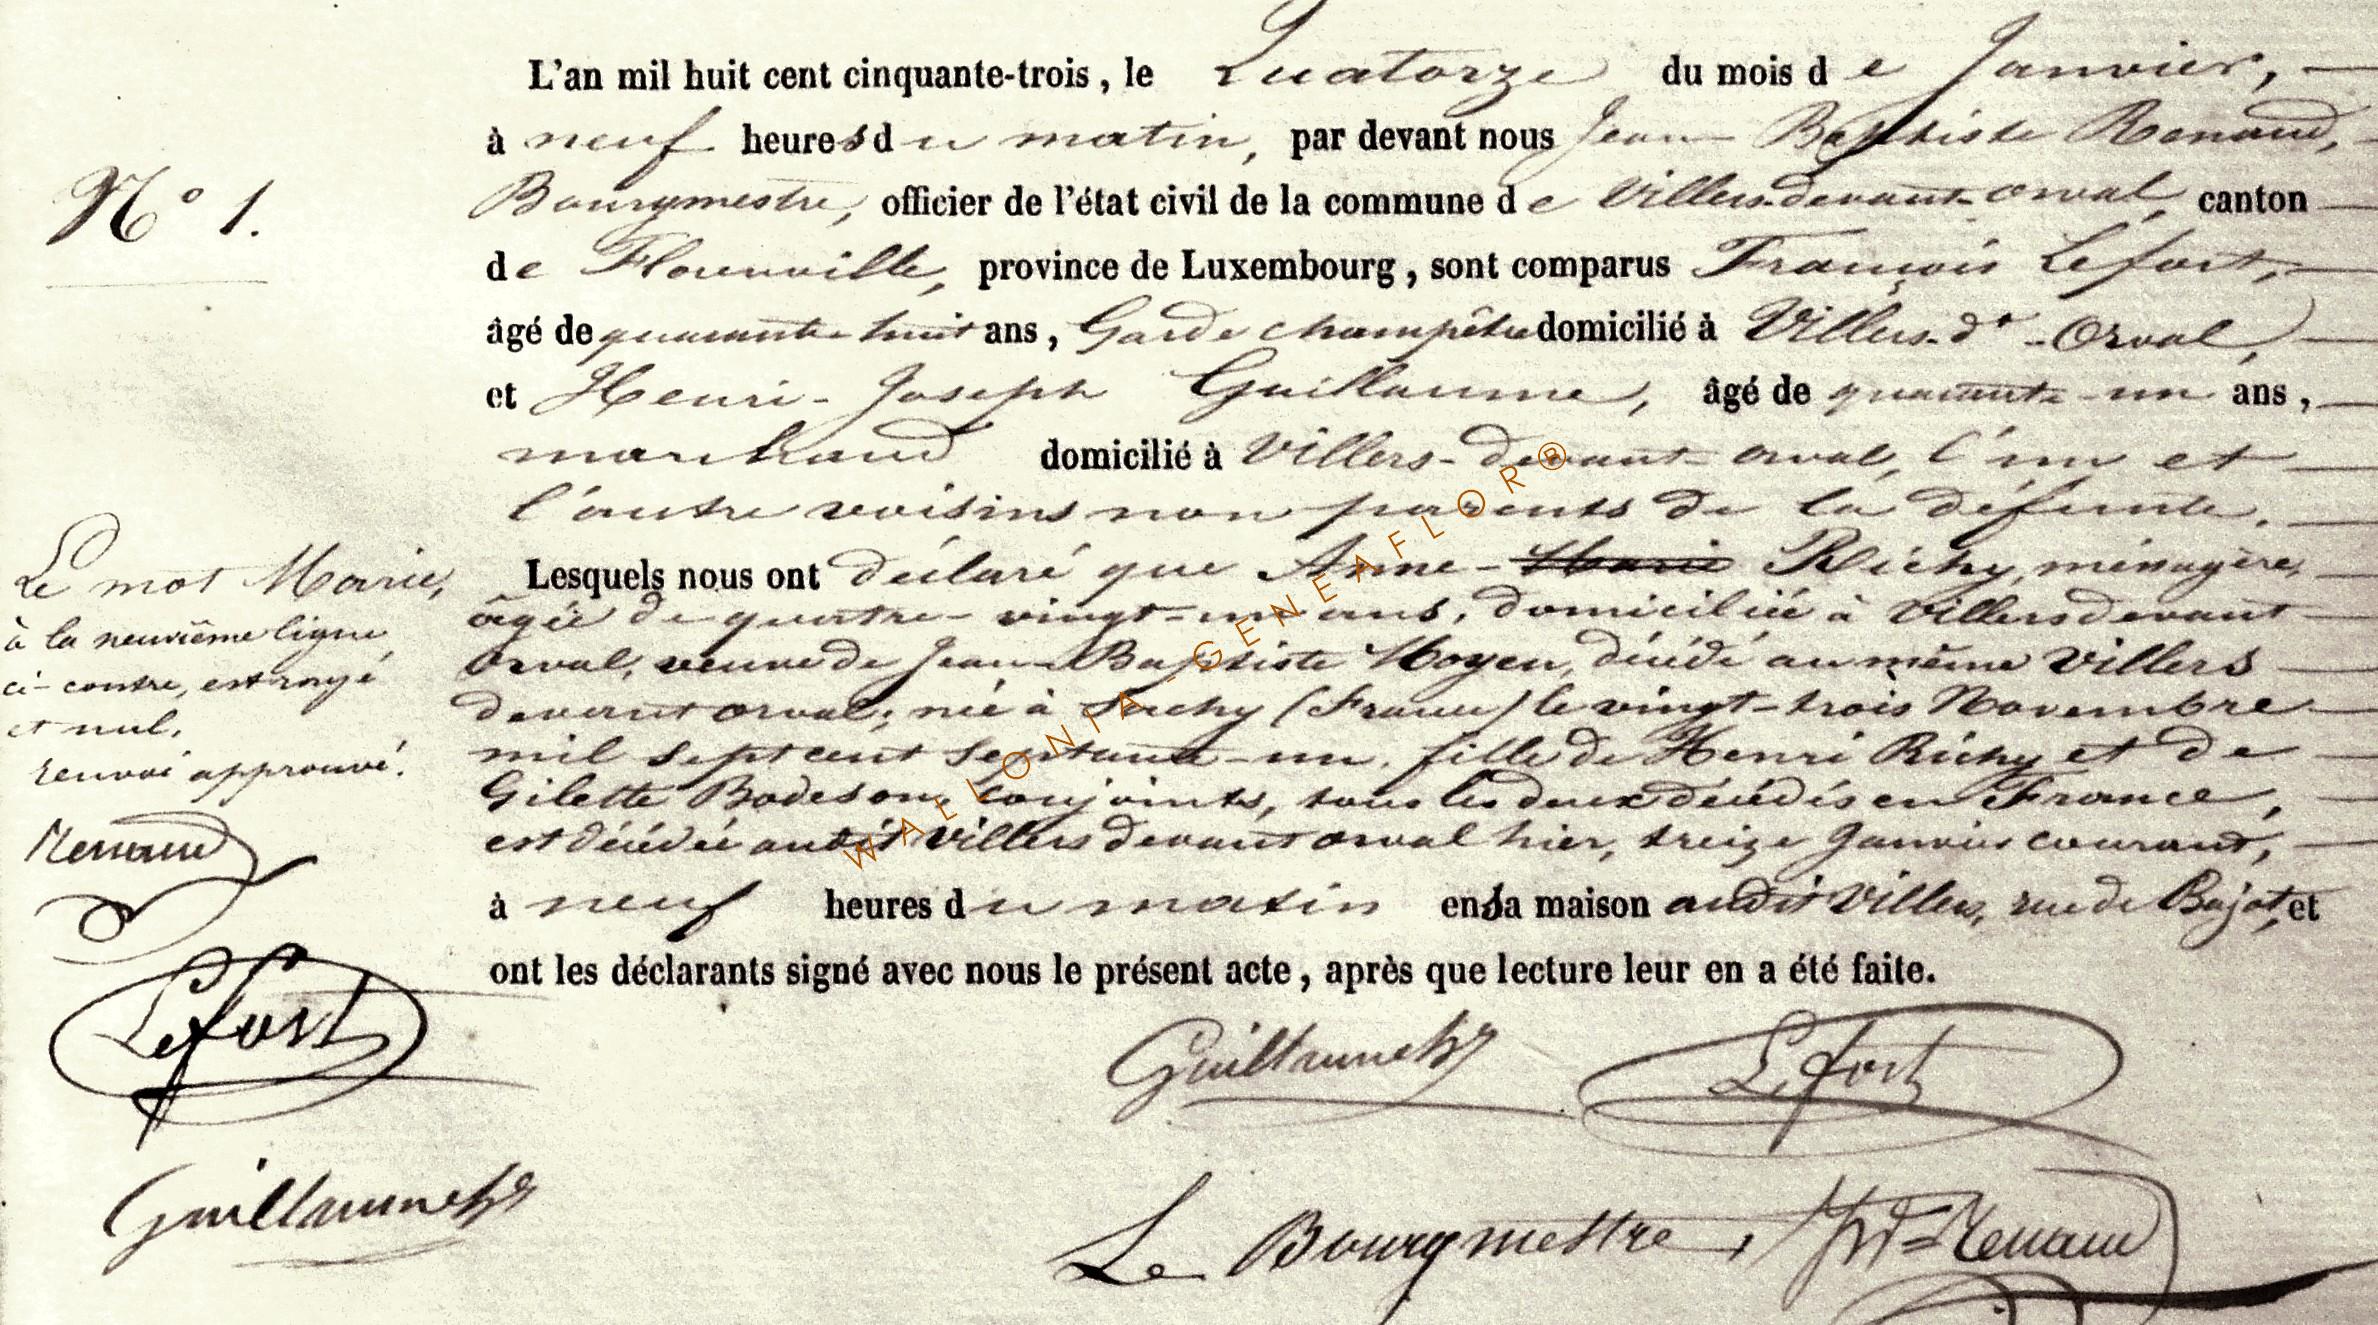 L'an mil huit cent cinquante-trois, le Quatorze du mois de Janvier,
à neuf heures du matin, par devant nous Jean Baptiste Renaud,
Bourgmestre, officier de l'état civil de la commune de Villers-devant-orval, canton
de Florenville, province de Luxembourg, sont comparus François Lefort,
âgé de quarante-huit ans, Garde champêtre domicilié à Villers-dt-Orval,
et Henri-Joseph Guillaume, âgé de quarante-un ans,
marchand domicilié à Villers-devant-orval, l'un et
l'autre voisins non parents de la défunte.
Lesquels nous ont déclaré que Anne-Marie Richy, ménagère,
âgée de quatre-vingt-un ans, domiciliée à Villers devant
orval, veuve de Jean-Baptiste Moyen, décédé au même Villers
devant orval; née à Sachy (France) le vingt-trois Novembre
mil sept cent septante-un, fille de Henri Richy et de
Gilette Bodeson, conjoints, tous les deux décédés en France,
est décédée audit Villers devant orval hier, treize Janvier courant,
à neuf heures du matin en sa maison audit Villers, rue de Bajot, et
ont les déclarants signé avec nous le présent acte, après que lecture leur en a été faite.
N° 1.
Le mot Marie,
à la neuvième ligne
ci-contre, est rayé
et nul.
renvoi approuvé.
Renaud
Lefort
Guillaume
Guillaume Lefort
Le Bourgmestre, Renaud
WALLONIA-GENEAFLOR®